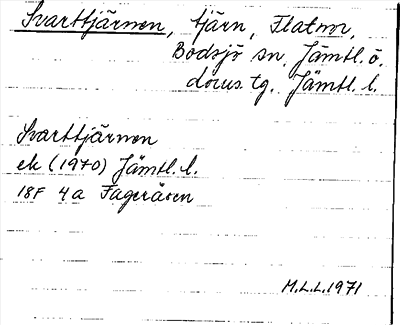 Svarttjärnen, tjärn, Flatnor,
Bodsjö sn, Jämtl. ö.
doms. tg. Jämtl. l.
Svarttjärnen
ek (1970) Jämtl. l.
18F 4a Fageråsen
M.L.L. 1971